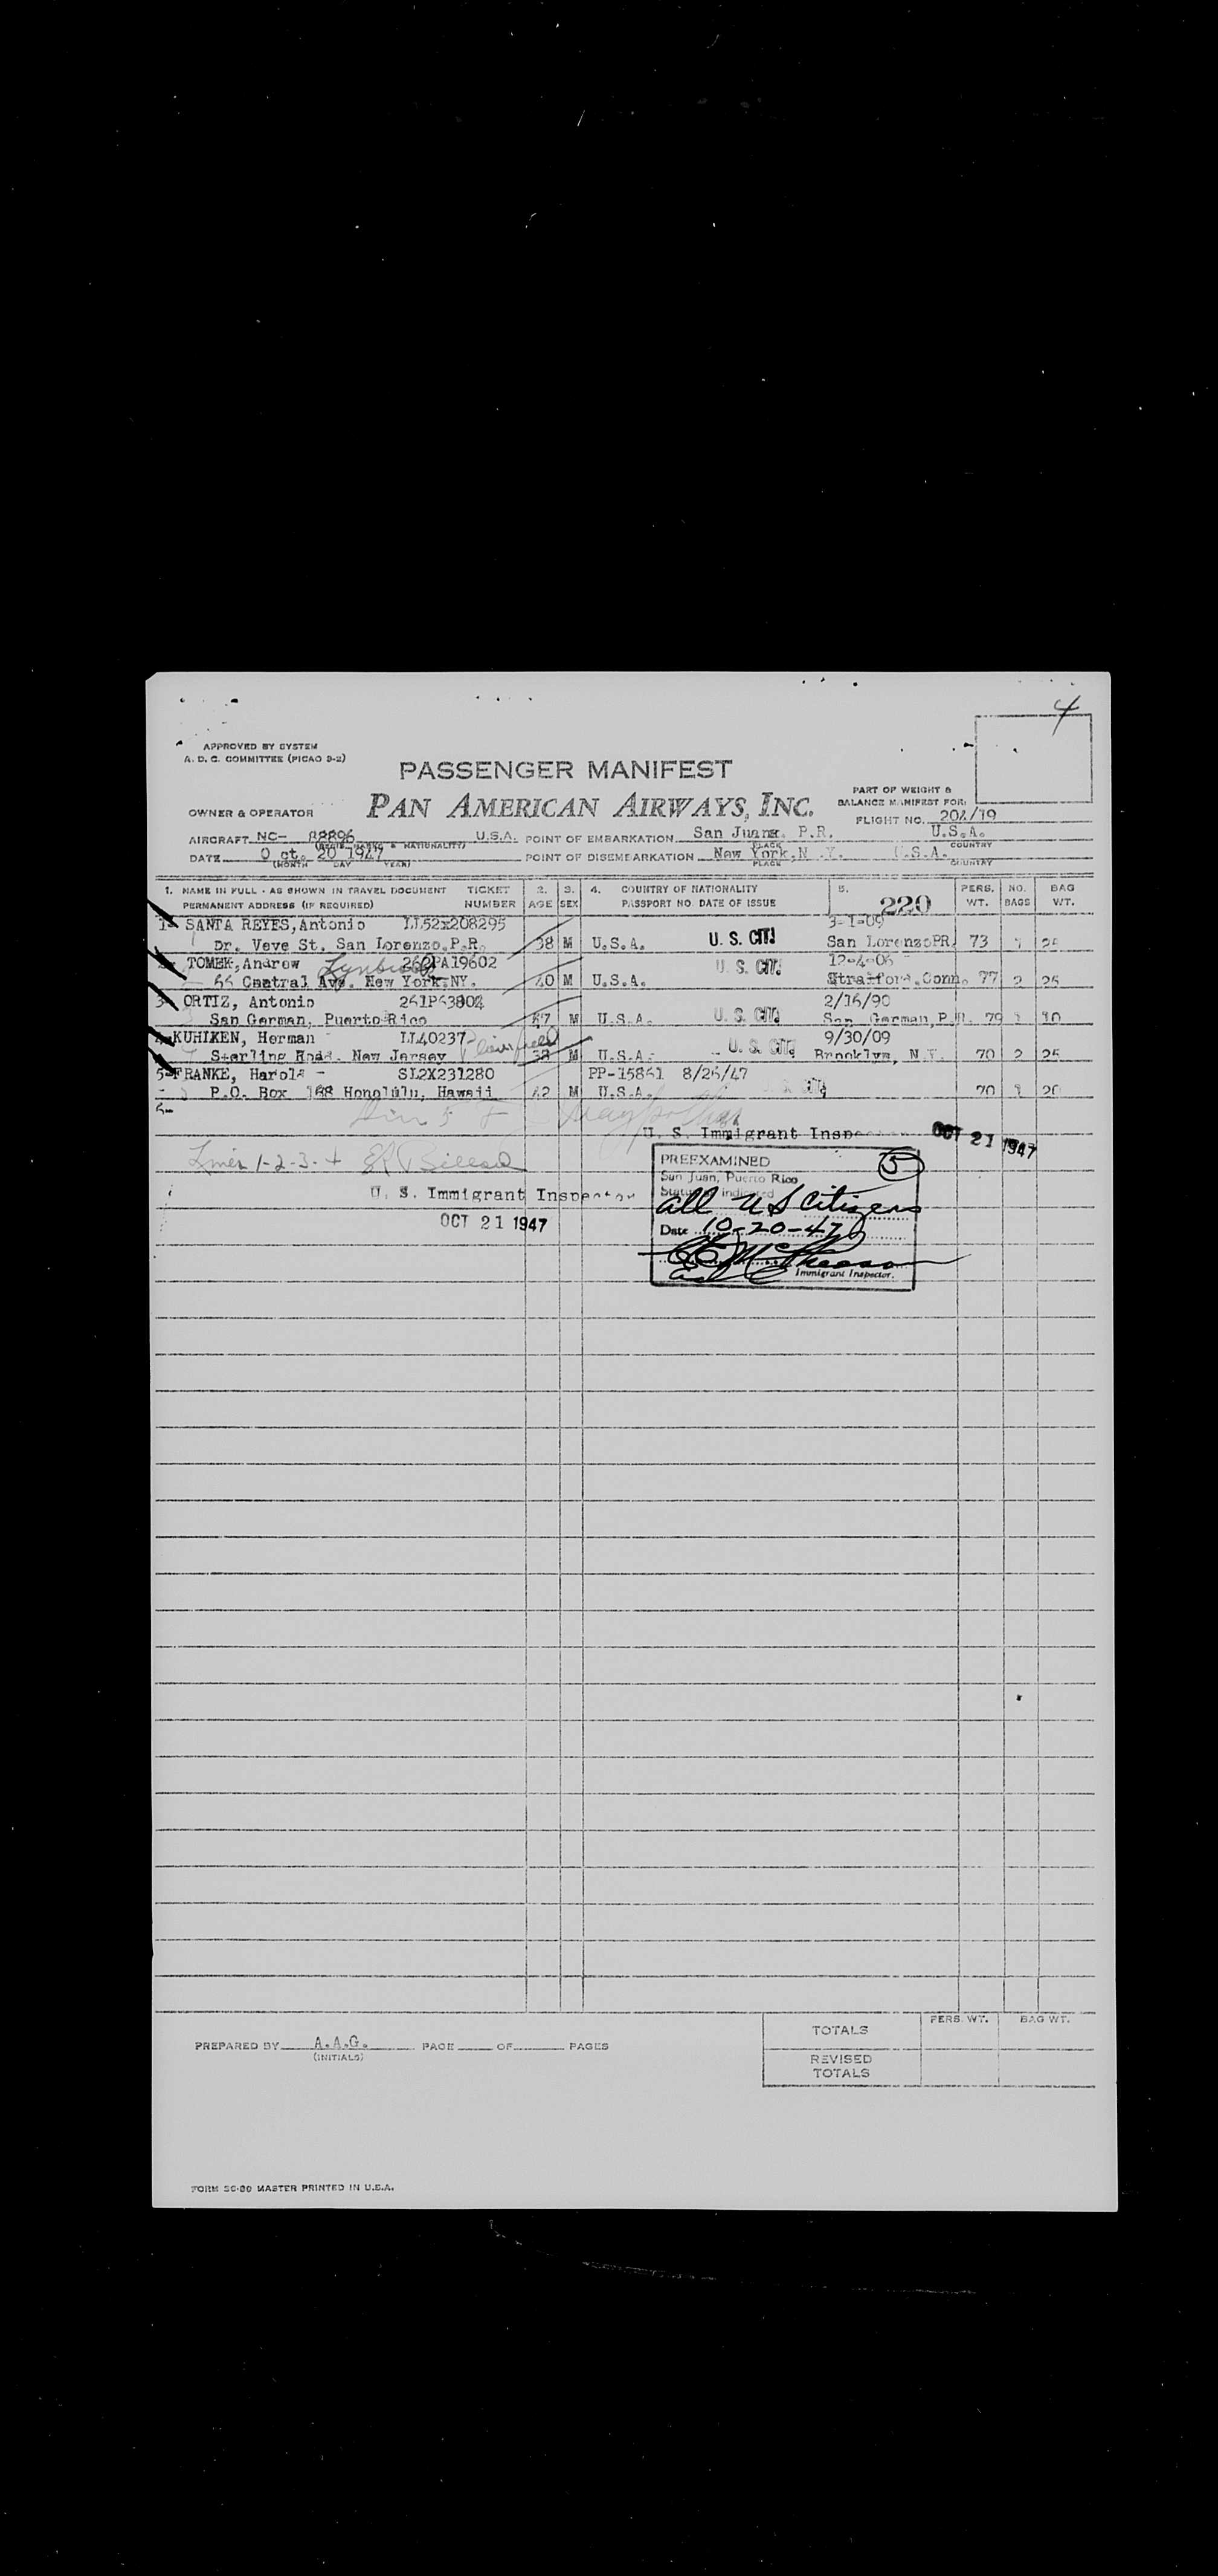 4
APPROVED BY SYSTEM
A. D. C. COMMITTEE (PICAO 9-2)
PASSENGER MANIFEST
PART OF WEIGHT &
BALANCE MANIFEST FOR:
OWNER & OPERATOR
PAN AMERICAN AIRWAYS, INC.
FLIGHT NO. 204/19
AIRCRAFT NC- 88896 U.S.A. POINT OF EMBARKATION San Juana. P.R. U.S.A.
PLACE COUNTRY
DATE O ct. 20 1947 POINT OF DISEMBARKATION New York, N .Y. U.S.A.
(MONTH DAY YEAR) PLACE COUNTRY
1. NAME IN FULL - AS SHOWN IN TRAVEL DOCUMENT TICKET 2. 3. 4. COUNTRY OF NATIONALITY 5. PERS. NO. BAG
PERMANENT ADDRESS (IF REQUIRED) NUMBER AGE SEX PASSPORT NO. DATE OF ISSUE 220 WT. BAGS WT.
1- SANTA REYES, Antonio LL52x208295 3-1-09
Dr. Veve St. San Lorenzo, P.R. 38 M U.S.A. U. S. CIT. San LorenzoPR. 73 25
TOMEK, Andrew Lynbrook 262PA19602 12-4-06
Central Ave. New York, NY. 40 M U.S.A. U. S. CIT. Stratford, Conn. 77 2 25
3- ORTIZ, Antonio 2/16/90
San German, Puerto Rico 57 M U.S.A. U. S. CIT. San German, P.R. 79 10
KUHIKEN, Herman LL40237 9/30/09
Sterling Road. New Jersey Plainfield 38 M U.S.A. U. S. CIT. Brooklyn, N.Y. 70 2 25
5- FRANKE, Harold SL2X231280 PP-15861 8/26/47
P.O. Box 168 Honolulu, Hawaii 42 M U.S.A. U. S. CIT. 70 20
6-
U. S. Immigrant Inspector OCT 21 1947
Lines 1-2-3-4
PREEXAMINED 5
San Juan, Puerto Rico
Status indicated
U. S. Immigrant Inspector
all US Citizens
OCT 21 1947
Date 10-20-47
Immigrant Inspector.
PREPARED BY A.A.G. PAGE OF PAGES
(INITIALS)
TOTALS PERS. WT. BAG WT.
REVISED
TOTALS
FORM SC-80 MASTER PRINTED IN U.S.A.